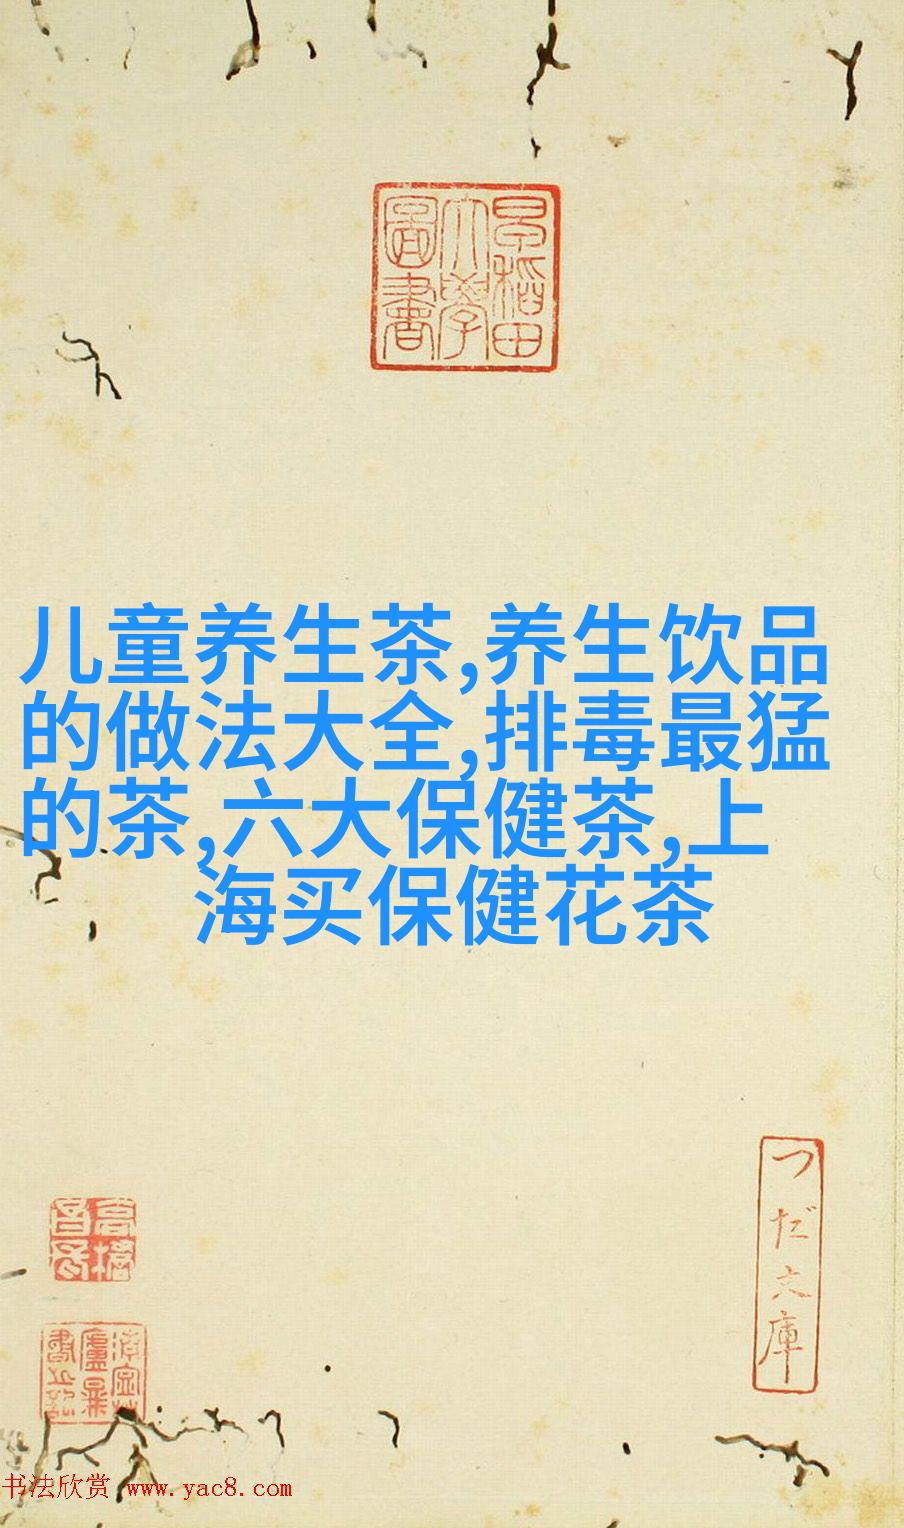 早稻田
大學
圖書
儿童养生茶,养生饮品
的做法大全,排毒最猛
的茶,六大保健茶,上
海买保健花茶
つだ文庫
书法欣赏 www.yac8.com